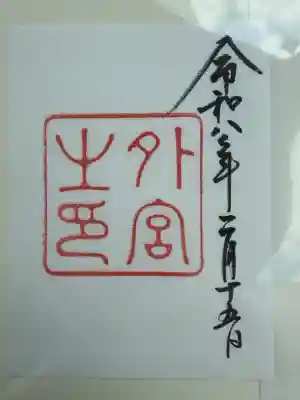 令和八年二月十五日
外宮
之印